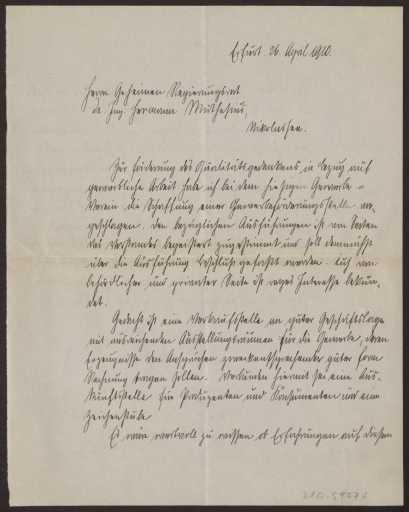 Erfurt 26. April 1910.
Herrn Geheimen Regierungsrat
Dr. Ing. Hermann Muthesius,
Nikolassee.
Zur Förderung des Qualitätsgedankens in bezug auf
gewerbliche Arbeit habe ich bei dem hiesigen Gewerbe-
Verein die Schaffung einer Gewerbeförderungsstelle an-
geschlagen. Den bezüglichen Ausführungen ist von Seiten
des Vorstandes begeistert zugestimmt und soll demnächst
über die Ausführung Beschluß gefasst werden. Auch von
behördlicher und privater Seite ist reges Interesse bekun-
det.
Gedacht ist eine Verkaufsstelle in guter Geschäftslage
mit ausreichenden Ausstellungsräumen für die Gewerbe, deren
Erzeugnisse den Ansprüchen zweckentsprechender guter Form
Rechnung tragen sollen. Verbunden hiermit sei eine Aus-
kunftsstelle für Produzenten und Konsumenten und eine
Zeichenstube
Es wäre wertvoll zu wissen ob Erfahrungen auf diesem